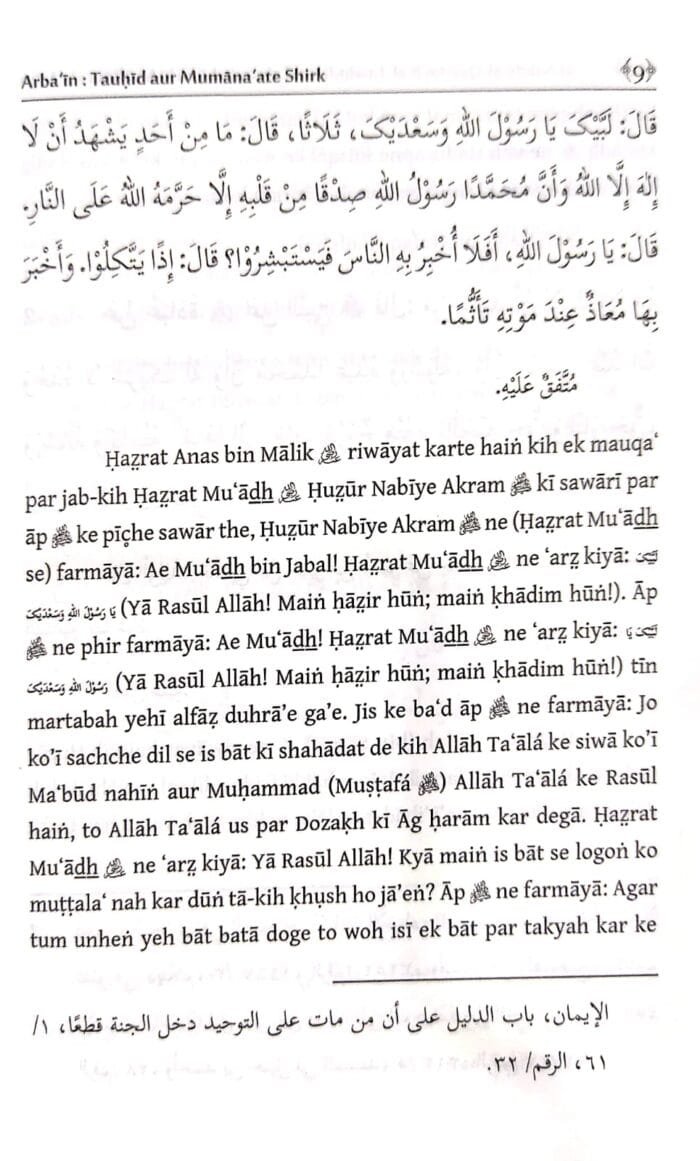 Arba‘īn : Tauḥīd aur Mumāna‘ate Shirk ﴾9﴿
قَالَ: لَبَّيْکَ يَا رَسُوْلَ اللهِ وَسَعْدَيْکَ، ثَلَاثًا، قَالَ: مَا مِنْ أَحَدٍ يَشْهَدُ أَنْ لَا
إِلٰهَ إِلَّا اللهُ وَأَنَّ مُحَمَّدًا رَسُوْلُ اللهِ صِدْقًا مِنْ قَلْبِهِ إِلَّا حَرَّمَهُ اللهُ عَلَى النَّارِ.
قَالَ: يَا رَسُوْلَ اللهِ، أَفَلَا أُخْبِرُ بِهِ النَّاسَ فَيَسْتَبْشِرُوْا؟ قَالَ: إِذًا يَتَّکِلُوْا. وَأَخْبَرَ
بِهَا مُعَاذٌ عِنْدَ مَوْتِهِ تَأَثُّمًا.
مُتَّفَقٌ عَلَيْهِ.
Ḥaz̤rat Anas bin Mālik ؓ riwāyat karte haiṅ kih ek mauqa‘
par jab-kih Ḥaz̤rat Mu‘ādh ؓ Ḥuz̤ūr Nabīye Akram ﷺ kī sawārī par
āp ﷺ ke pīçhe sawār the, Ḥuz̤ūr Nabīye Akram ﷺ ne (Ḥaz̤rat Mu‘ādh
se) farmāyā: Ae Mu‘ādh bin Jabal! Ḥaz̤rat Mu‘ādh ؓ ne ‘arz̤ kiyā: لَبَّيْکَ
يَا رَسُوْلَ اللهِ وَسَعْدَيْکَ (Yā Rasūl Allāh! Maiṅ ḥāz̤ir hūṅ; maiṅ ḳhādim hūṅ!). Āp
ﷺ ne phir farmāyā: Ae Mu‘ādh! Ḥaz̤rat Mu‘ādh ؓ ne ‘arz̤ kiyā: لَبَّيْکَ يَا
رَسُوْلَ اللهِ وَسَعْدَيْکَ (Yā Rasūl Allāh! Maiṅ ḥāz̤ir hūṅ; maiṅ ḳhādim hūṅ!) tīn
martabah yehī alfāz̤ duhrā’e ga’e. Jis ke ba‘d āp ﷺ ne farmāyā: Jo
ko’ī sachche dil se is bāt kī shahādat de kih Allāh Ta‘ālá ke siwā ko’ī
Ma‘būd nahīṅ aur Muḥammad (Muṣṭafá ﷺ) Allāh Ta‘ālá ke Rasūl
haiṅ, to Allāh Ta‘ālá us par Dozaḳh kī Āg ḥarām kar degā. Ḥaz̤rat
Mu‘ādh ؓ ne ‘arz̤ kiyā: Yā Rasūl Allāh! Kyā maiṅ is bāt se logoṅ ko
muṭṭala‘ nah kar dūṅ tā-kih ḳhush ho jā’eṅ? Āp ﷺ ne farmāyā: Agar
tum unheṅ yeh bāt batā doge to woh isī ek bāt par takyah kar ke
الإيمان، باب الدليل على أن من مات على التوحيد دخل الجنة قطعًا، ١/
٦١، الرقم/ ٣٢.